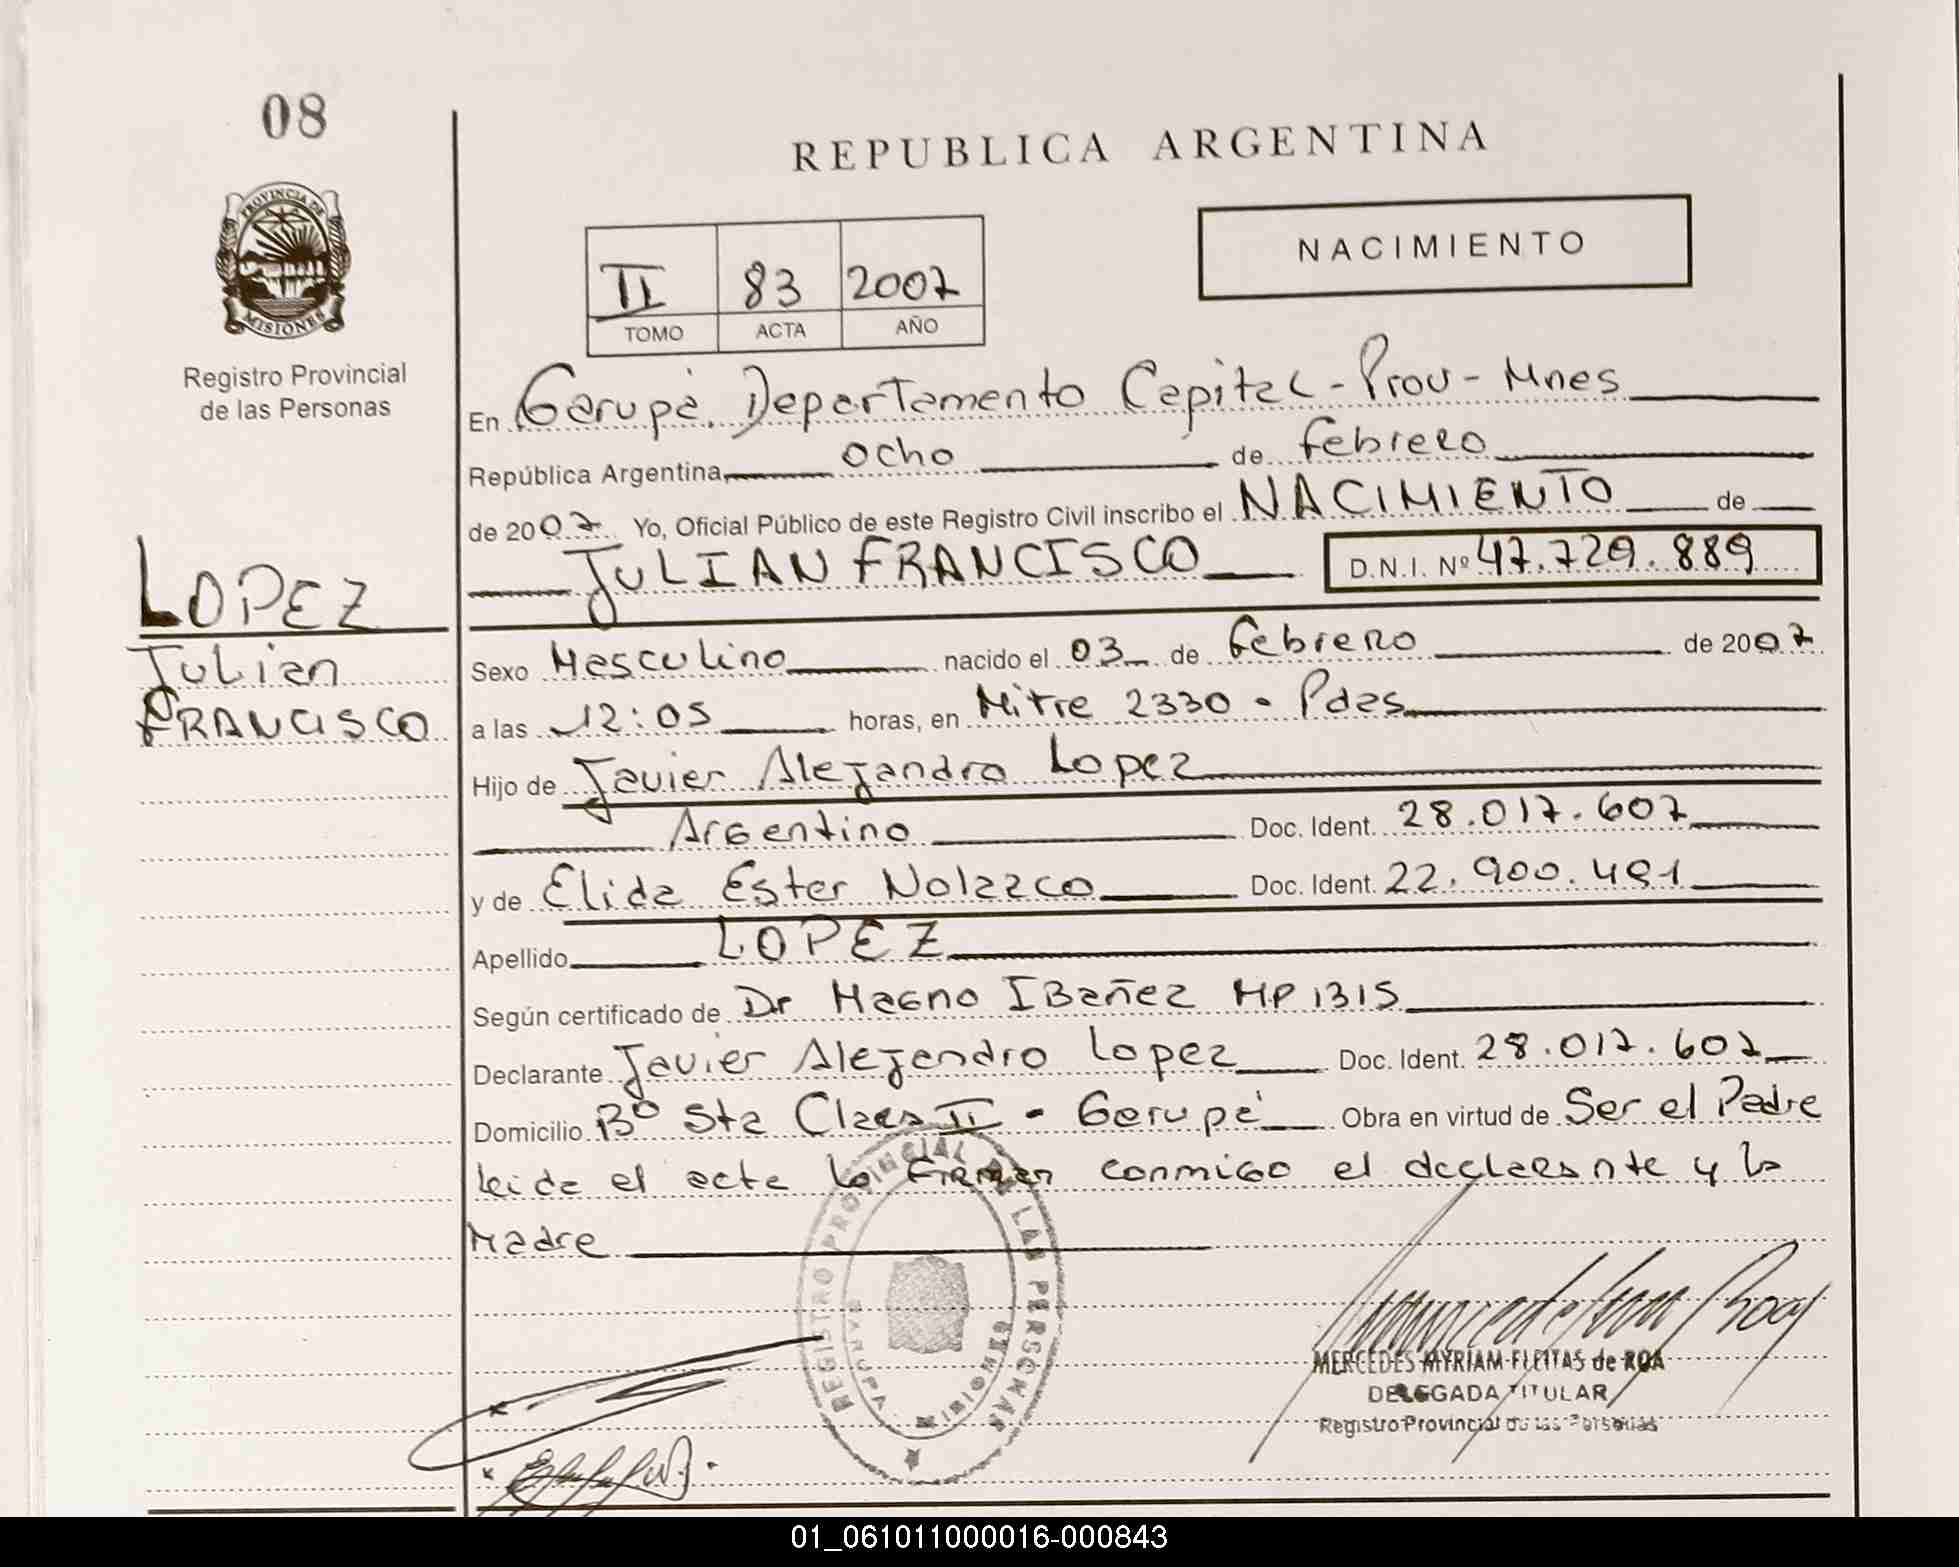 08
REPUBLICA ARGENTINA
PROVINCIA DE MISIONES
Registro Provincial
de las Personas
II 83 2007
TOMO ACTA AÑO
NACIMIENTO
En Garupá. Departamento Capital - Prov - Mnes
República Argentina, ocho de febrero
de 2007 Yo, Oficial Público de este Registro Civil inscribo el NACIMIENTO de
JULIAN FRANCISCO D.N.I. Nº 47.729.889
LOPEZ
Julian
FRANCISCO
Sexo Masculino nacido el 03 de febrero de 2007
a las 12:05 horas, en Mitre 2330 - Pdas
Hijo de Javier Alejandro Lopez
Argentino Doc. Ident. 28.017.607
y de Elida Ester Nolazco Doc. Ident. 22.900.491
Apellido LOPEZ
Según certificado de Dr Magno IBañez MP 1315
Declarante Javier Alejandro Lopez Doc. Ident. 28.017.607
Domicilio Bº Sta Clara II - Garupá Obra en virtud de Ser el Padre
leida el acta la firman conmigo el declarante y la
Madre
REGISTRO PROVINCIAL DE LAS PERSONAS
GARUPA MISIONES
MERCEDES MYRIAM FLEITAS de ROA
DELEGADA TITULAR
Registro Provincial de las Personas
01_061011000016-000843